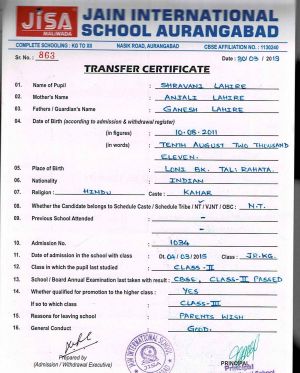 JISA
MALIWADA
JAIN INTERNATIONAL
SCHOOL AURANGABAD
COMPLETE SCHOOLING : KG TO XII NASIK ROAD, AURANGABAD CBSE AFFILIATION NO. : 1130340
Sr. No. : 863 Date : 30/03/2019
TRANSFER CERTIFICATE
01. Name of Pupil : SHRAVANI LAHIRE
02. Mother's Name : ANJALI LAHIRE
03. Fathers / Guardian's Name : GANESH LAHIRE
04. Date of Birth (according to admission & withdrawal register)
(in figures) : 10-08-2011
(in words) : TENTH AUGUST TWO THOUSAND
ELEVEN.
05. Place of Birth : LONI BK. TAL: RAHATA.
06. Nationality : INDIAN
07. Religion : HINDU Caste : KAHAR
08. Whether the Candidate belongs to Schedule Caste / Schedule Tribe / NT / VJNT / OBC : N.T.
09. Previous School Attended : -
-
10. Admission No. : 1034
11. Date of admission in the school with class : Dt. 04/03/2015 Class : JR.KG.
12. Class in which the pupil last studied : CLASS-II
13. School / Board Annual Examination last taken with result : CBSE, CLASS-II PASSED
14. Whether qualified for promotion to the higher class : YES
If so to which class : CLASS-III
15. Reasons for leaving school : PARENTS WISH
16. General Conduct : GOOD.
Prepared by
(Admission / Withdrawal Executive)
JAIN INTERNATIONAL SCHOOL
PRINCIPAL